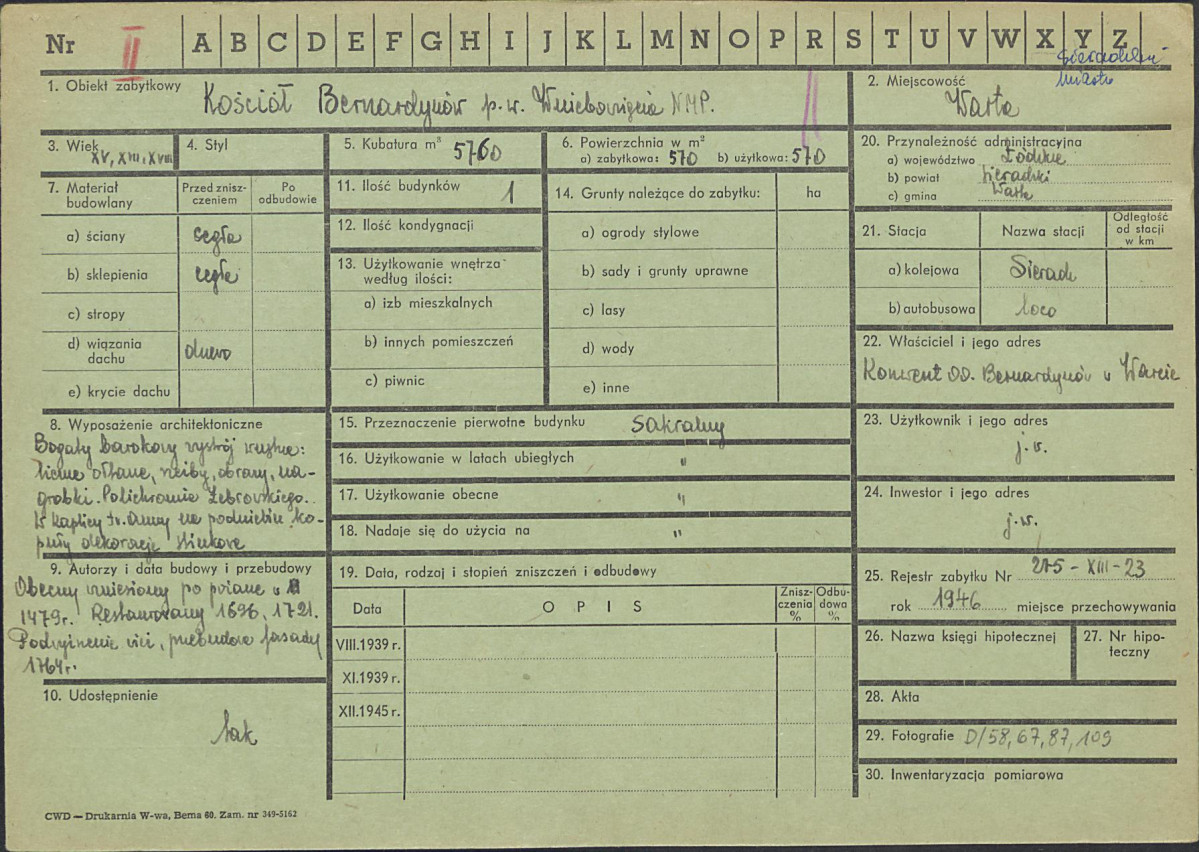 Nr II A B C D E F G H I J K L M N O P R S T U V W X Y Z
sieradzki
miasto
1. Obiekt zabytkowy Kościół Bernardynów p.w. Wniebowzięcia NMP.
2. Miejscowość
Warta
3. Wiek
XV, XVII, XVIII
4. Styl
5. Kubatura m³ 5760
6. Powierzchnia w m²
a) zabytkowa: 570 b) użytkowa: 570
20. Przynależność administracyjna
a) województwo Łódzkie
b) powiat sieradzki
c) gmina Warta
7. Materiał
budowlany
Przed znisz-
czeniem
Po
odbudowie
a) ściany cegła
b) sklepienia cegła
c) stropy
d) wiązania
dachu drewno
e) krycie dachu
11. Ilość budynków 1
12. Ilość kondygnacji
13. Użytkowanie wnętrza
według ilości:
a) izb mieszkalnych
b) innych pomieszczeń
c) piwnic
14. Grunty należące do zabytku: ha
a) ogrody stylowe
b) sady i grunty uprawne
c) lasy
d) wody
e) inne
21. Stacja Nazwa stacji
Odległość
od stacji
w km
a) kolejowa Sieradz
b) autobusowa loco
22. Właściciel i jego adres
Konwent OO. Bernardynów w Warcie
8. Wyposażenie architektoniczne
Bogaty barokowy wystrój wnętrza:
liczne ołtarze, rzeźby, obrazy, na-
grobki. Polichromia Żebrowskiego.
W kaplicy św. Anny na podniebiu ko-
puły dekoracja stiukowa
15. Przeznaczenie pierwotne budynku sakralny
16. Użytkowanie w latach ubiegłych "
17. Użytkowanie obecne "
18. Nadaje się do użycia na "
23. Użytkownik i jego adres
j.w.
24. Inwestor i jego adres
j.w.
9. Autorzy i data budowy i przebudowy
Obecny wzniesiony po pożarze w
1479r. Restaurowany 1696, 1721.
Podwyższenie wieży, przebudowa fasady
1764r.
10. Udostępnienie
tak
19. Data, rodzaj i stopień zniszczeń i odbudowy
Data OPIS
Znisz-
czenia
%
Odbu-
dowa
%
VIII.1939 r.
XI.1939 r.
XII.1945 r.
25. Rejestr zabytku Nr 275-XIII-23
rok 1946 miejsce przechowywania
26. Nazwa księgi hipotecznej
27. Nr hipo-
teczny
28. Akta
29. Fotografie D/58, 67, 87, 109
30. Inwentaryzacja pomiarowa
CWD — Drukarnia W-wa, Bema 60. Zam. nr 349-5162